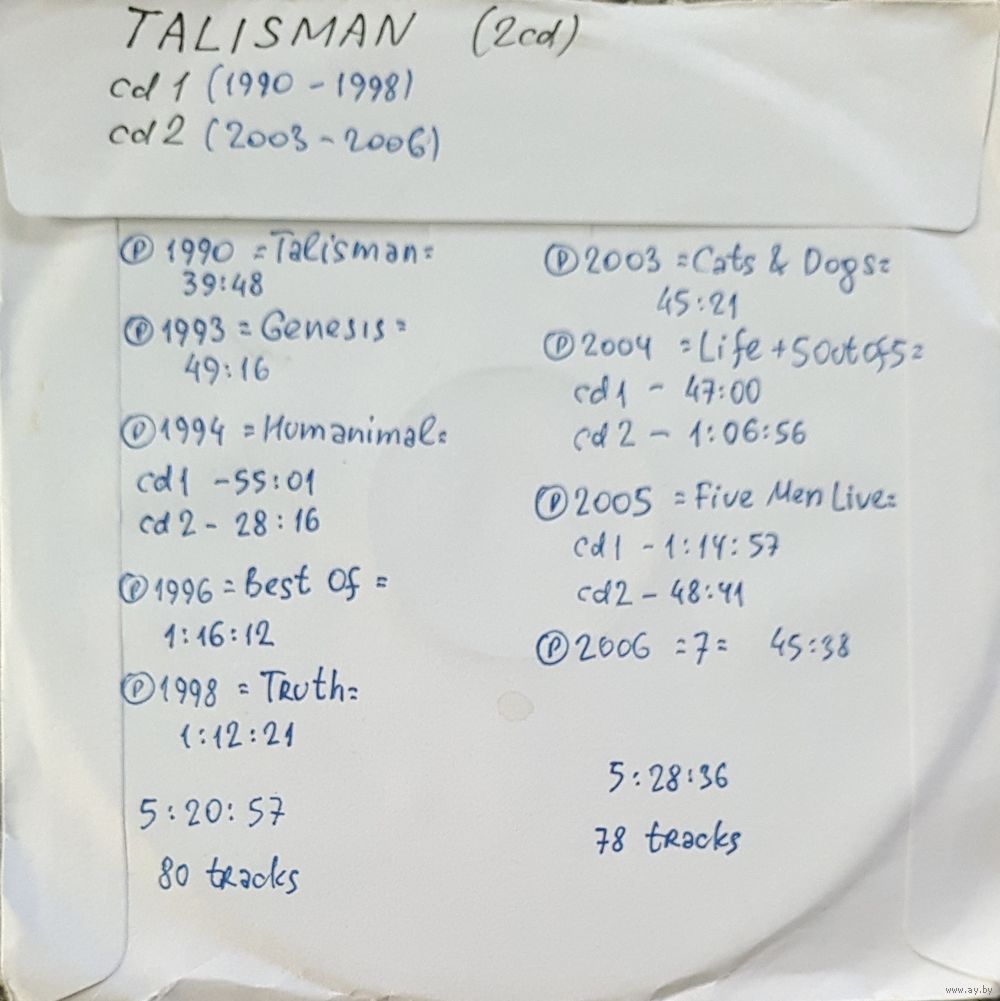 TALISMAN (2cd)
cd 1 (1990 - 1998)
cd 2 (2003 - 2006)
Ⓟ 1990 = Talisman =
39:48
Ⓟ 1993 = Genesis =
49:16
Ⓟ 1994 = Humanimal =
cd1 - 55:01
cd 2 - 28:16
Ⓟ 1996 = Best Of =
1:16:12
Ⓟ 1998 = Truth =
1:12:21
5:20:57
80 tracks
Ⓟ 2003 = Cats & Dogs =
45:21
Ⓟ 2004 = Life + 5 Out Of 5 =
cd1 - 47:00
cd 2 - 1:06:56
Ⓟ 2005 = Five Men Live =
cd1 - 1:14:57
cd2 - 48:41
Ⓟ 2006 = 7 = 45:38
5:28:36
78 tracks
www.ay.by